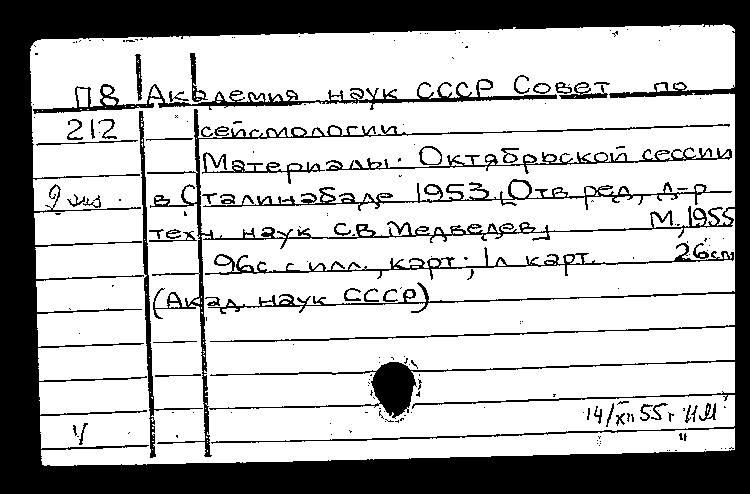 П8 Академия наук СССР Совет по
212 сейсмологии.
Материалы Октябрьской сессии
2 экз. в Сталинабаде 1953, [Отв. ред. д-р
техн. наук С.В. Медведев] М., 1955
96с. с илл., карт.; 1л карт. 26см
(Акад. наук СССР)
V 14/XII 55г.